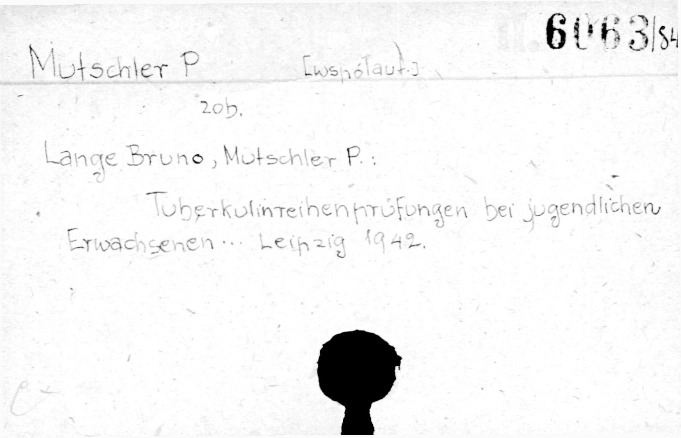 6063/54
Mutschler P [współaut.]
zob.
Lange Bruno, Mutschler P.:
Tuberkulinreihenprüfungen bei jugendlichen
Erwachsenen... Leipzig 1942.